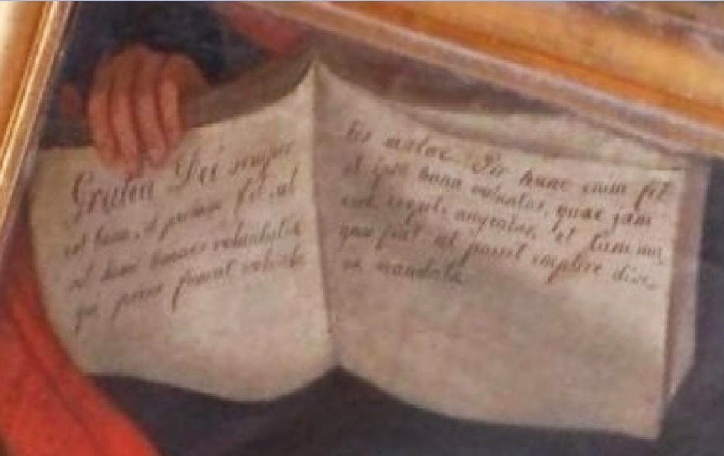 Gratia Dei semper
est bona, et per hanc fit, ut
sit homo bonae voluntatis
qui prius fuerat volunta
tis malae. Per hanc enim fit
ut ipsa bona voluntas, quae jam
esse coepit, augeatur, et tam ma
gna fiat ut possit implere divi
na mandata